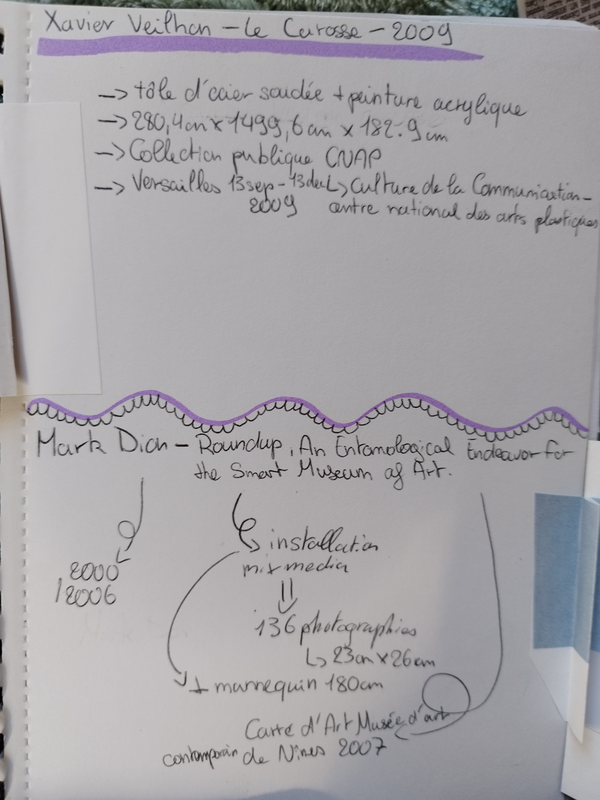 Xavier Veilhan - Le Carosse - 2009
-> tôle d'acier soudée + peinture acrylique
-> 280,4cm x 1499,6 cm x 182.9 cm
-> Collection publique CNAP
-> Versailles 13sep - 13dec ↳ Culture de la Communication -
2009 centre national des arts plastiques
Mark Dion - Roundup, An Entomological Endeavor for
the Smart Museum of Art.
installation
mix media
2000
/2006
136 photographies
↳ 23cm x 26cm
+ mannequin 180cm
Carré d'Art Musée d'art
contemporain de Nîmes 2007